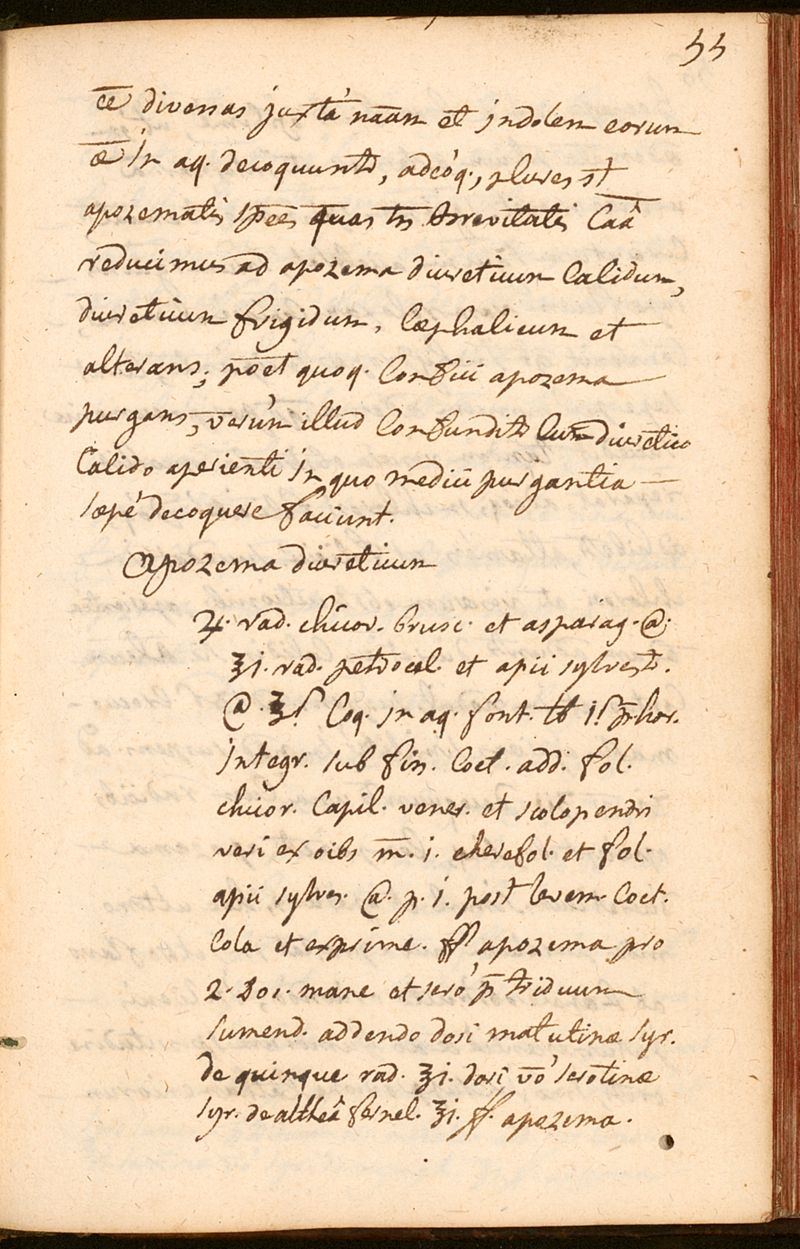 55
c̄e diversas juxtà nāam et indolem eorum
æ in aq. decoquunt̄r, adeóq., plures st̄
apozematis sp̄ees quas tn̄ brevitatis Caâ
reducimus ad apozema diureticum Calidum,
diureticum frigidum, Cæphalicum et
alterans; po͞et quoq. Confici apozema
purgans, verùm illud Confundit̄r Cum diuretico
Calido aperienti in quo medici purgantia —
sæpè decoquere faciunt.
apozema diureticum
♃. rad. chicor. brusc. et asparag. @.
ʒi. rad. petrosel. et apii sylvest̄r.
@. ʒſ Coq. in aq. font. ℔ iſ p̄r hor.
integr. sub fin. Coct. add. fol.
chicor. Capil. vener. et scolopendri
veri ex oibs m̄. i. cherefol. et fol.
apii sylves. @. p. i. post levem Coct.
Cola et exprime. ff apozema pro
2. dos. mane et serò p̄ triduum
sumend. addendo dosi matutinæ syr.
de quinque rad. ʒi. dosi v̄o serotinæ
syr. de altheâ fernel. ʒi. ff. apozema.